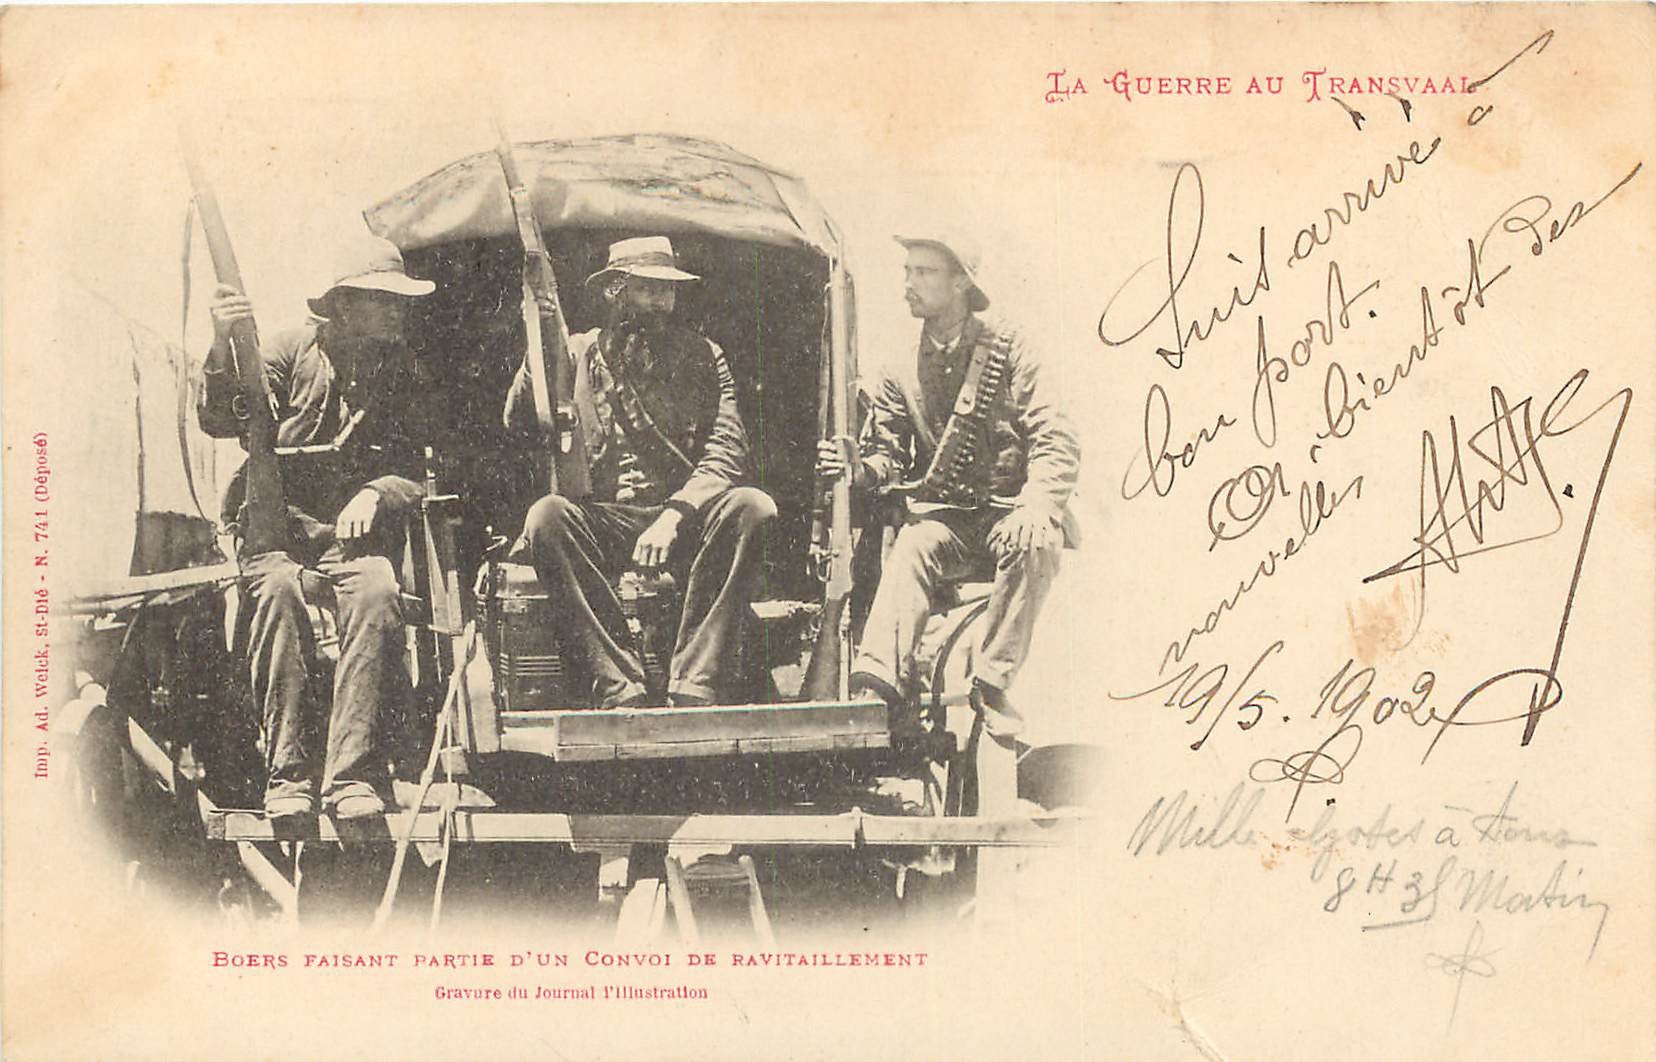 La Guerre au Transvaal
Suis arrivé à
bon port.
à bientôt des
nouvelles
19/5. 1902
Mille choses à tous
8H 35 Matin
Imp. Ad. Weick, St-Dié - N. 741 (Déposé)
Boers faisant partie d'un Convoi de ravitaillement
Gravure du Journal l'Illustration